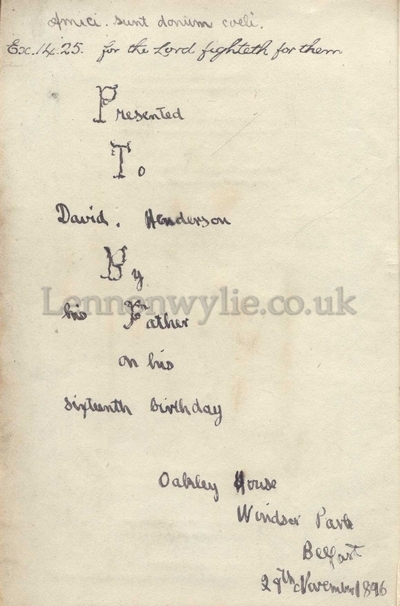 Amici sunt donum coeli.
Ex. 14. 25. for the Lord fighteth for them
Presented
To
David. Henderson
By
Lennonwylie.co.uk
his Father
on his
sixteenth birthday
Oakley House
Windsor Park
Belfast
29th November 1896